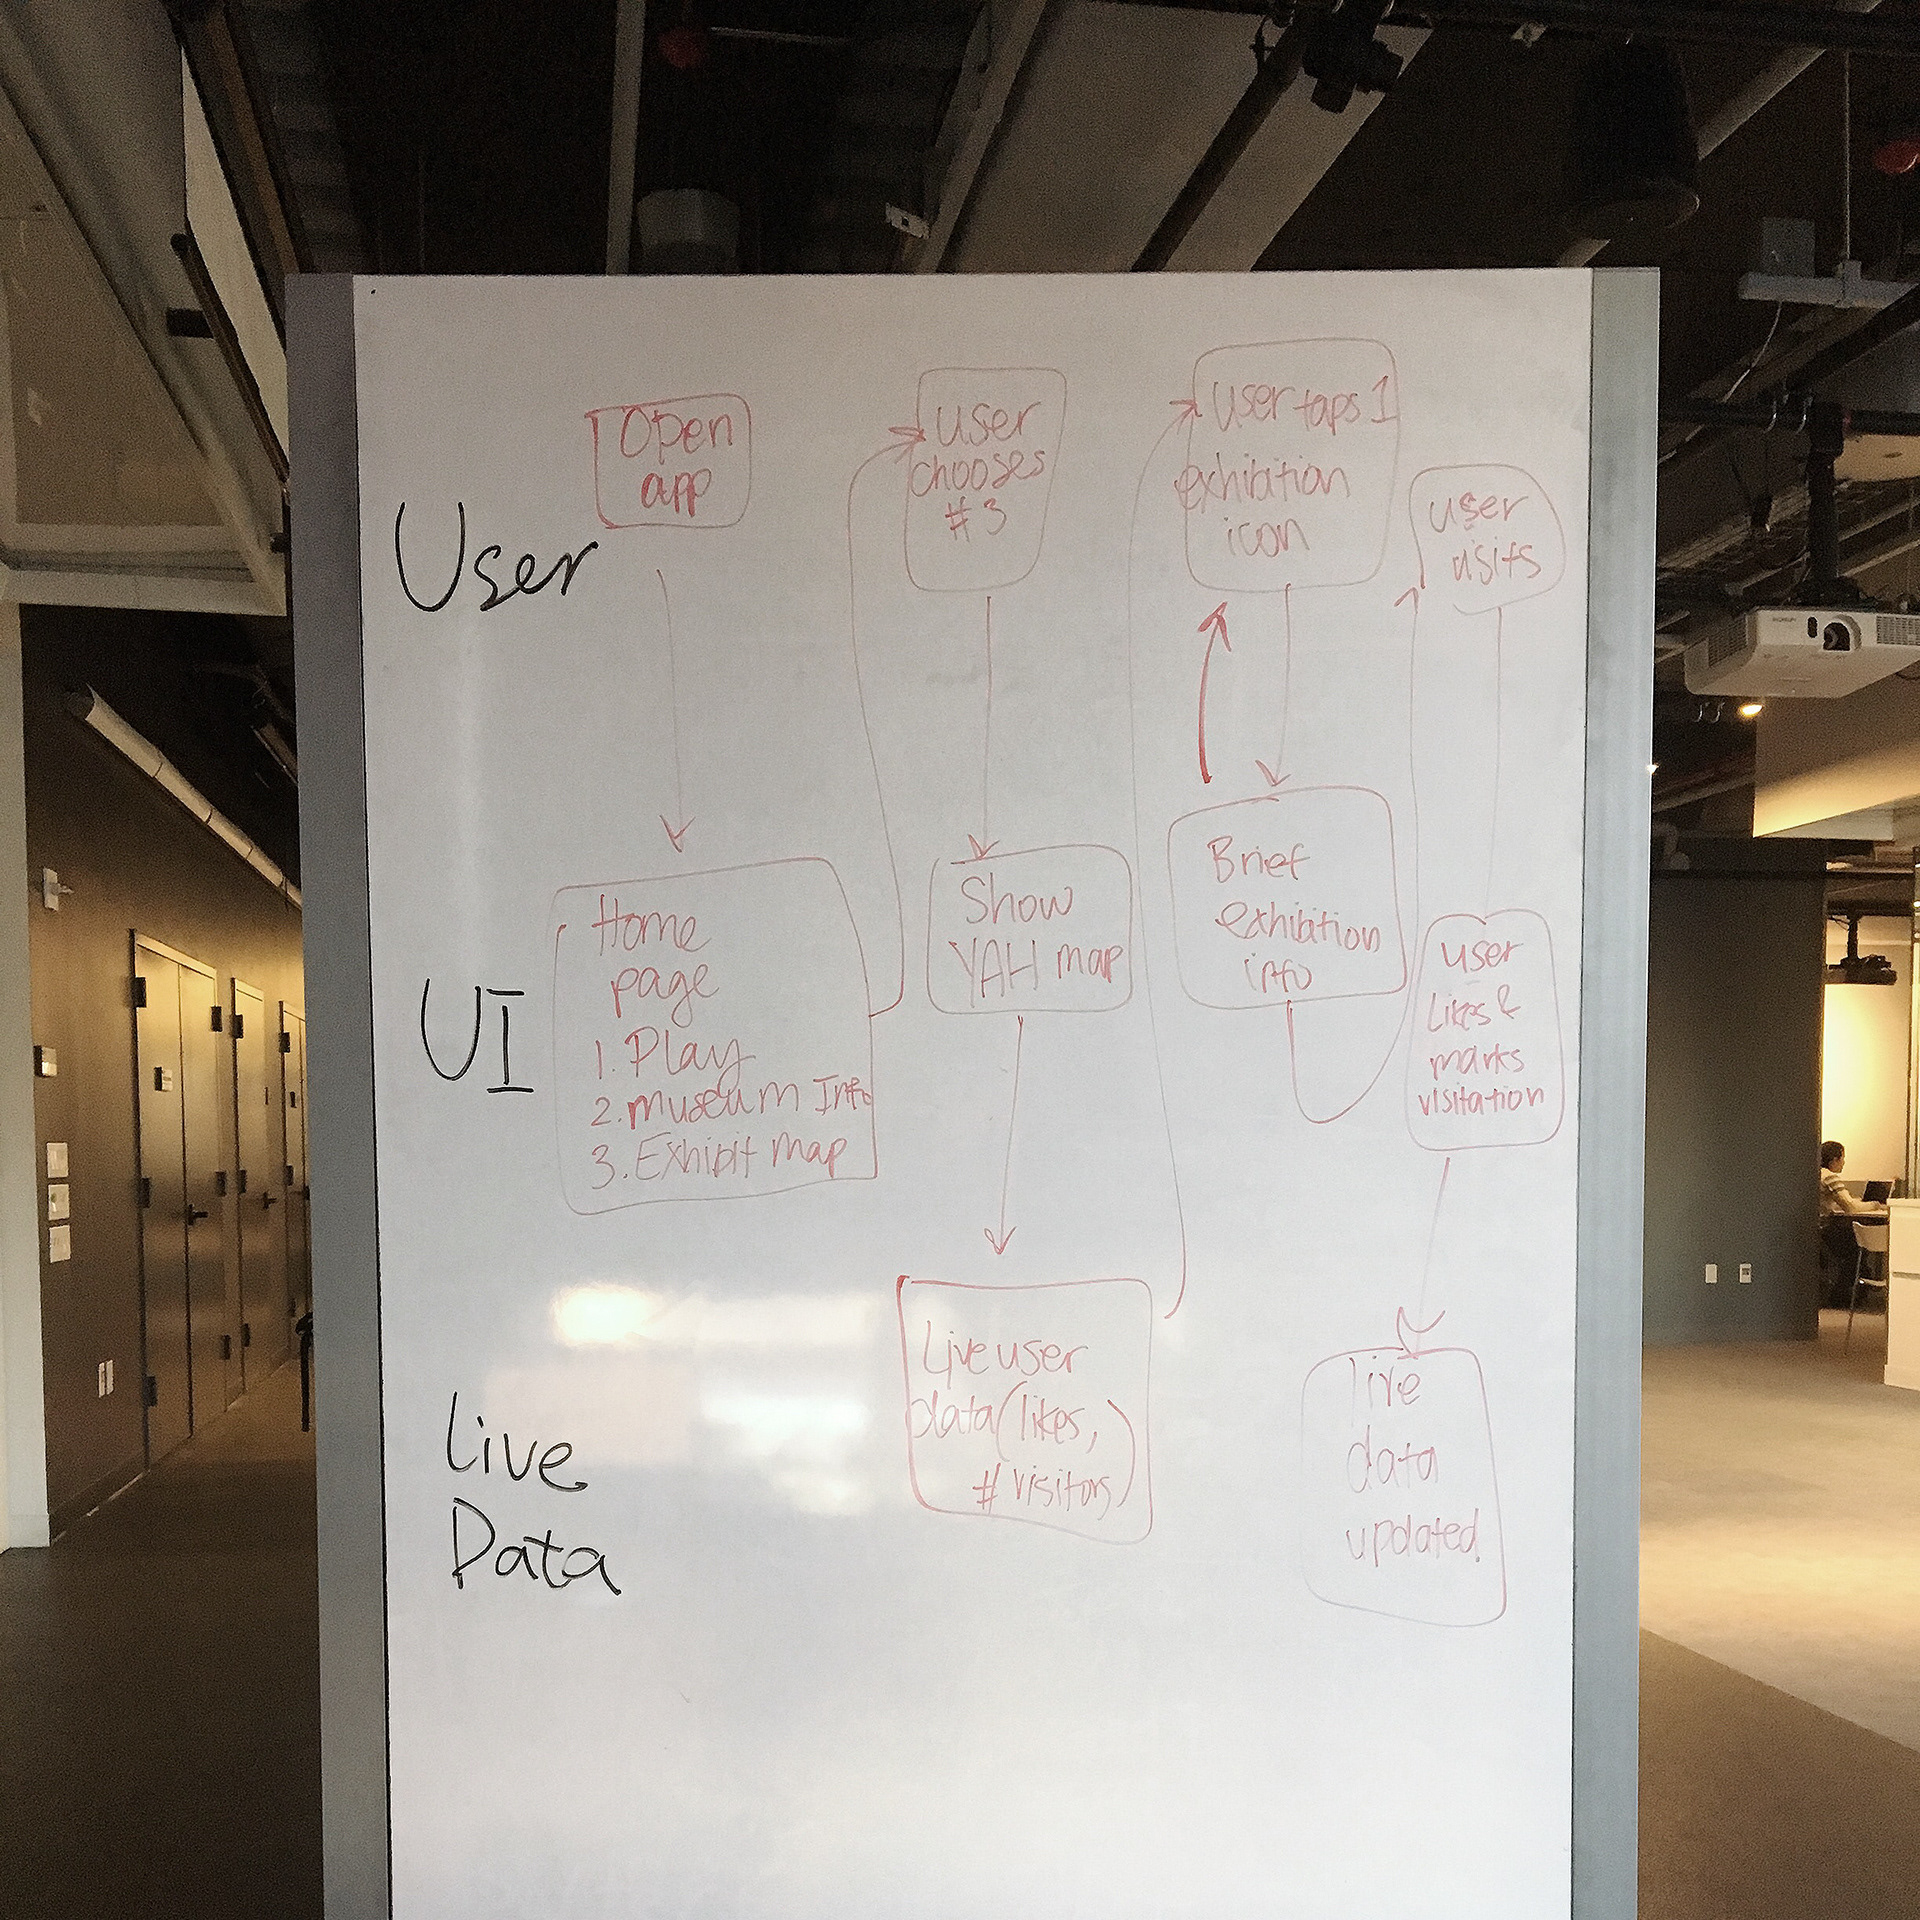 User
Open
app
user
chooses
#3
User taps 1
exhibition
icon
user
visits
UI
Home
page
1. Play
2. museum Info
3. Exhibit map
Show
YAH map
Brief
exhibition
info
user
likes &
marks
visitation
Live
Data
Live user
data (likes,
# visitors)
live
data
updated